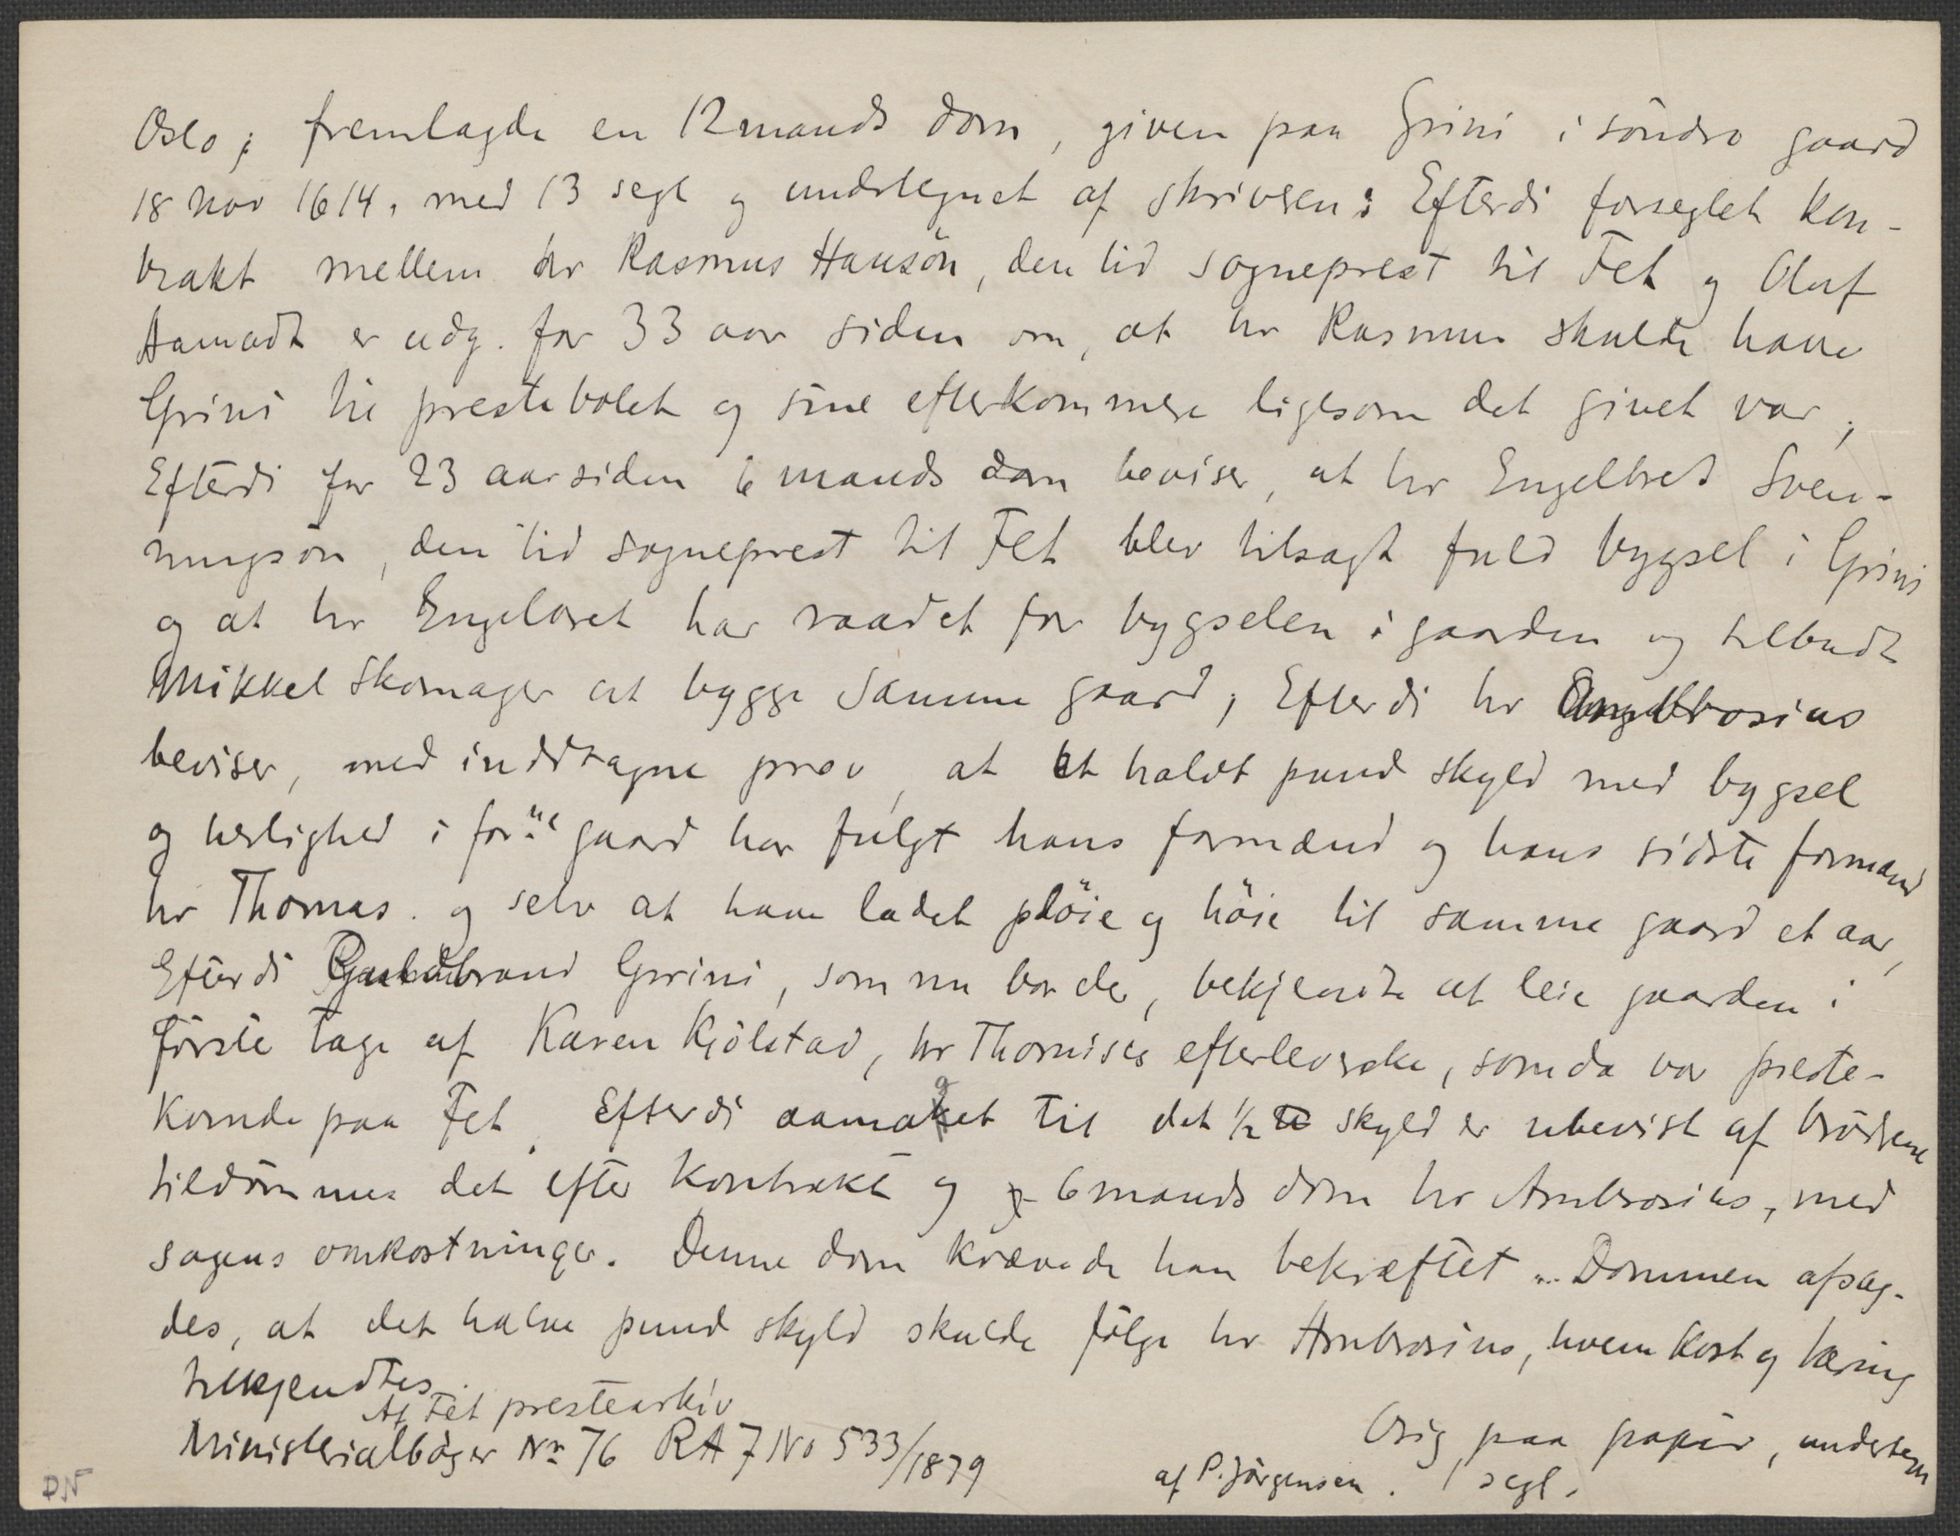 Oslo; fremlagde en 12mands dom, given paa Grini i söndro gaard
18 nov 1614, med 13 segl og undertegnet af skriveren: Efterdi forseglet kon-
trakt mellem hr Rasmus Hansön, den tid sogneprest til Fet og Oluf
er udg. for 33 aar siden om, at hr Rasmus skulde have
Grini til prestebolet og sine efterkommere ligesom det givet var;
Efterdi for 23 aar siden 6 mands dom beviser, at hr Engelbret Sven-
ningsön, den tid sogneprest til Fet blev tilsagt fuld bygsel i Grini
og at hr Engelbret har raadet for bygselen i gaarden og tilbudt
Mikkel Skomager at bygge samme gaard; Efterdi hr Ambrosius
beviser, med inddragne prov, at et haldt pund skyld med bygsel
og herlighed i forne gaard har fulgt hans formænd og hans sidste formand
hr Thomas. og selv at have ladet plöie og höie til samme gaard et aar,
Efterdi Gudbrand Grini, som nu bor der, bekjendte at leie gaarden i
förste tage af Karen Kjölstad, hr Thomises efterleverske, som da var preste-
konde paa Fet, Efterdi aamaget til det ½ ℔ skyld er ubevist af brödrene
tildömmes det efter kontrakt og 6mands dom hr Ambrosius, med
sagens omkostninger. Denne dom krævede han bekræftet ... Dommen afsag-
des, at det halve pund skyld skulde fölge hr Ambrosius, hvem kost og tæring
tilkjendtes.
Af Fet prestearkiv
Ministerialböger Nr 76 RA 7 No 533/1879
Orig paa papir, undertegn
af P. Jörgensen. 1 segl.
DN